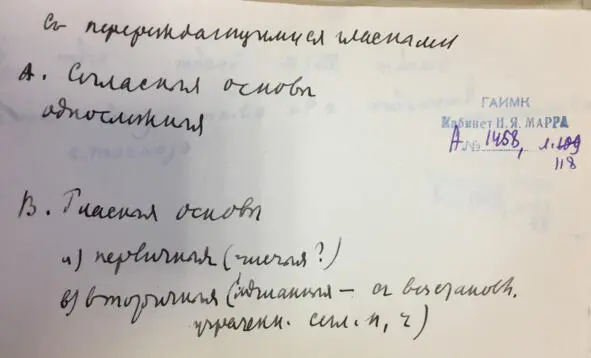 Съ перерождающимися гласными
А. Согласныя основы
односложныя
ГАИМК
Кабинет Н. Я. МАРРА
А № 1458, л. 109
118
В. Гласныя основы
а) первичныя (чистыя?)
в) вторичныя ( – съ возстановл.
утраченн. согл. н, ч)